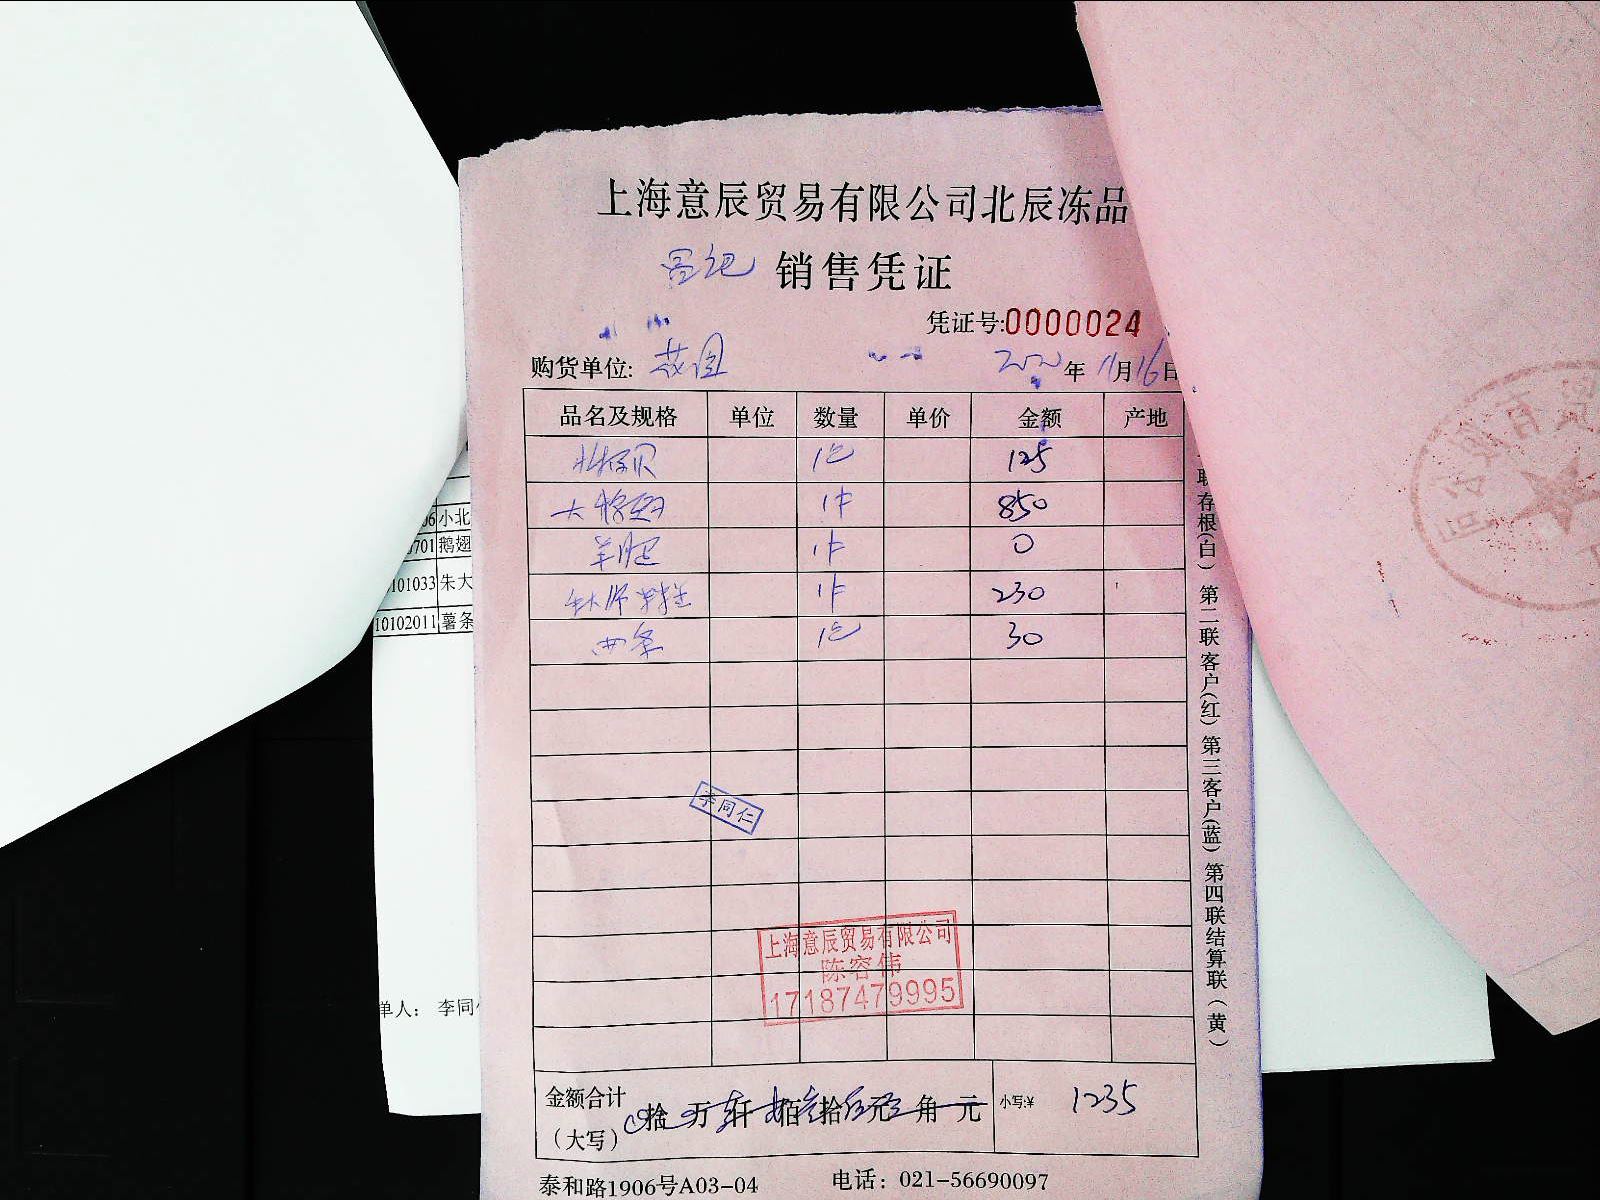 上海意辰贸易有限公司北辰冻品
销售凭证
凭证号:0000024
购货单位: 花园 年 11月16日
品名及规格 单位 数量 单价 金额 产地
北极贝 1包 125
1件 850
羊肥 1件 0
1件 230
西条 1包 30
李同仁
上海意辰贸易有限公司
陈容伟
17187479995
金额合计
(大写) 拾 万 仟 佰 拾 元 角 元 小写:¥ 1235
泰和路1906号A03-04 电话：021-56690097
联存根(白) 第二联客户(红) 第三客户(蓝) 第四联结算联(黄)
06 小北
701 鹅翅
101033 朱大
10102011 薯条
单人： 李同